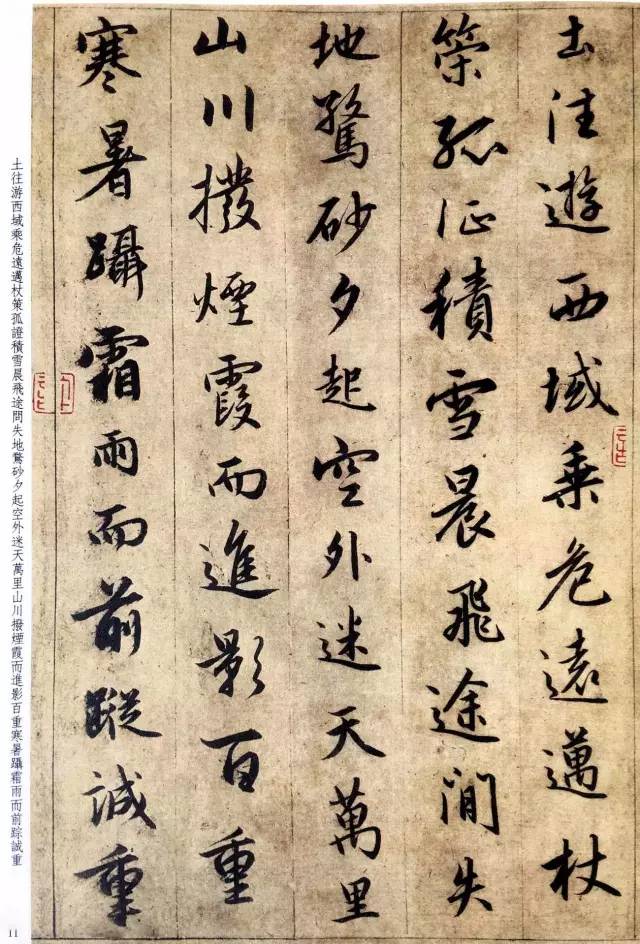 土往遊西域乘危遠邁杖
策孤征積雪晨飛途間失
地驚砂夕起空外迷天萬里
山川撥煙霞而進影百重
寒暑躡霜雨而前蹤誠重
土往游西域乘危遠邁杖策孤證積雪晨飛途問失地驚砂夕起空外迷天萬里山川撥煙霞而進影百重寒暑躡霜雨而前踪誠重
11